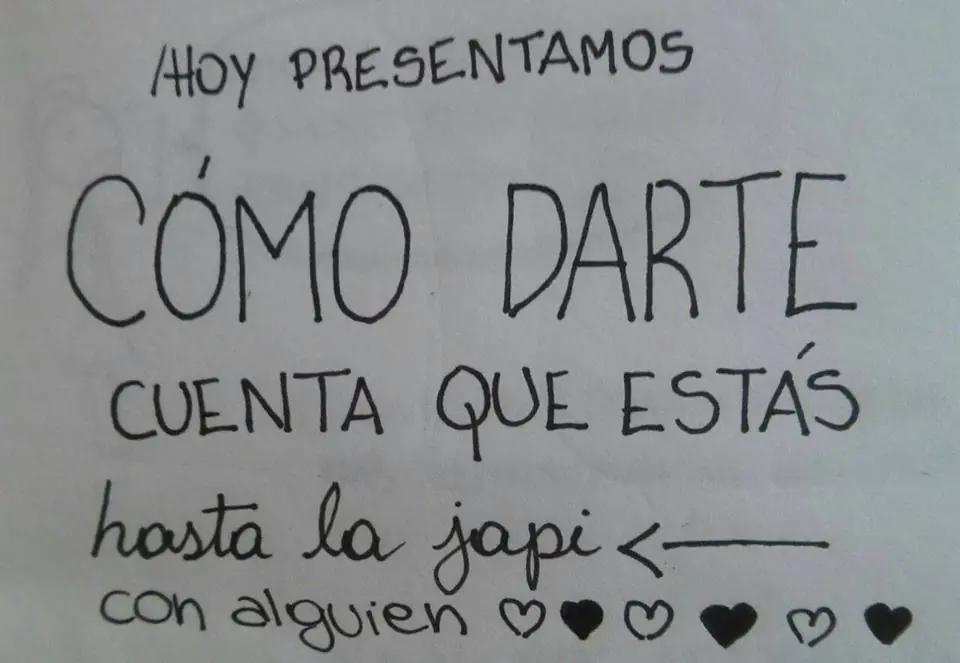 HOY PRESENTAMOS
CÓMO DARTE
CUENTA QUE ESTÁS
hasta la japi
con alguien